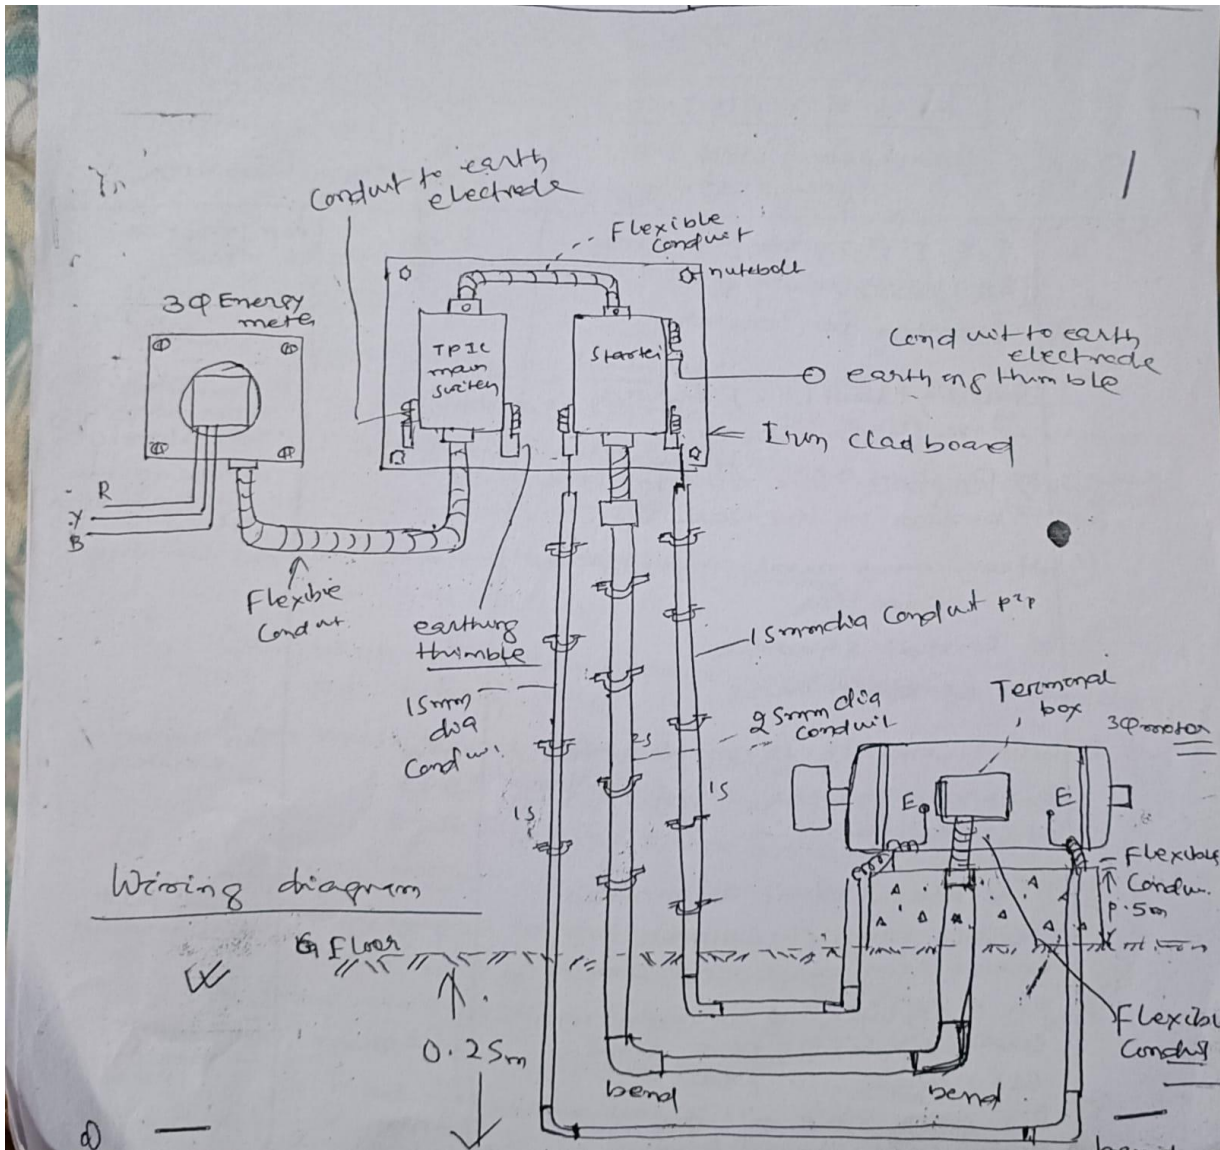 Conduit to earth
electrode
Flexible
conduit
nutebolt
3Φ Energy
meter
TPIC
main
switch
Starter
Conduit to earth
electrode
earthing thimble
Iron clad board
R
Y
B
Flexible
Conduit
earthing
thimble
15mmdia Conduit pip
15mm
dia
Condui
25mm dia
Conduit
25
15
15
Terminal
box
3Φ motor
E
E
Flexible
Condui
0.5m
Wiring diagram
G Floor
0.25m
Flexibl
Conduit
bend
bend